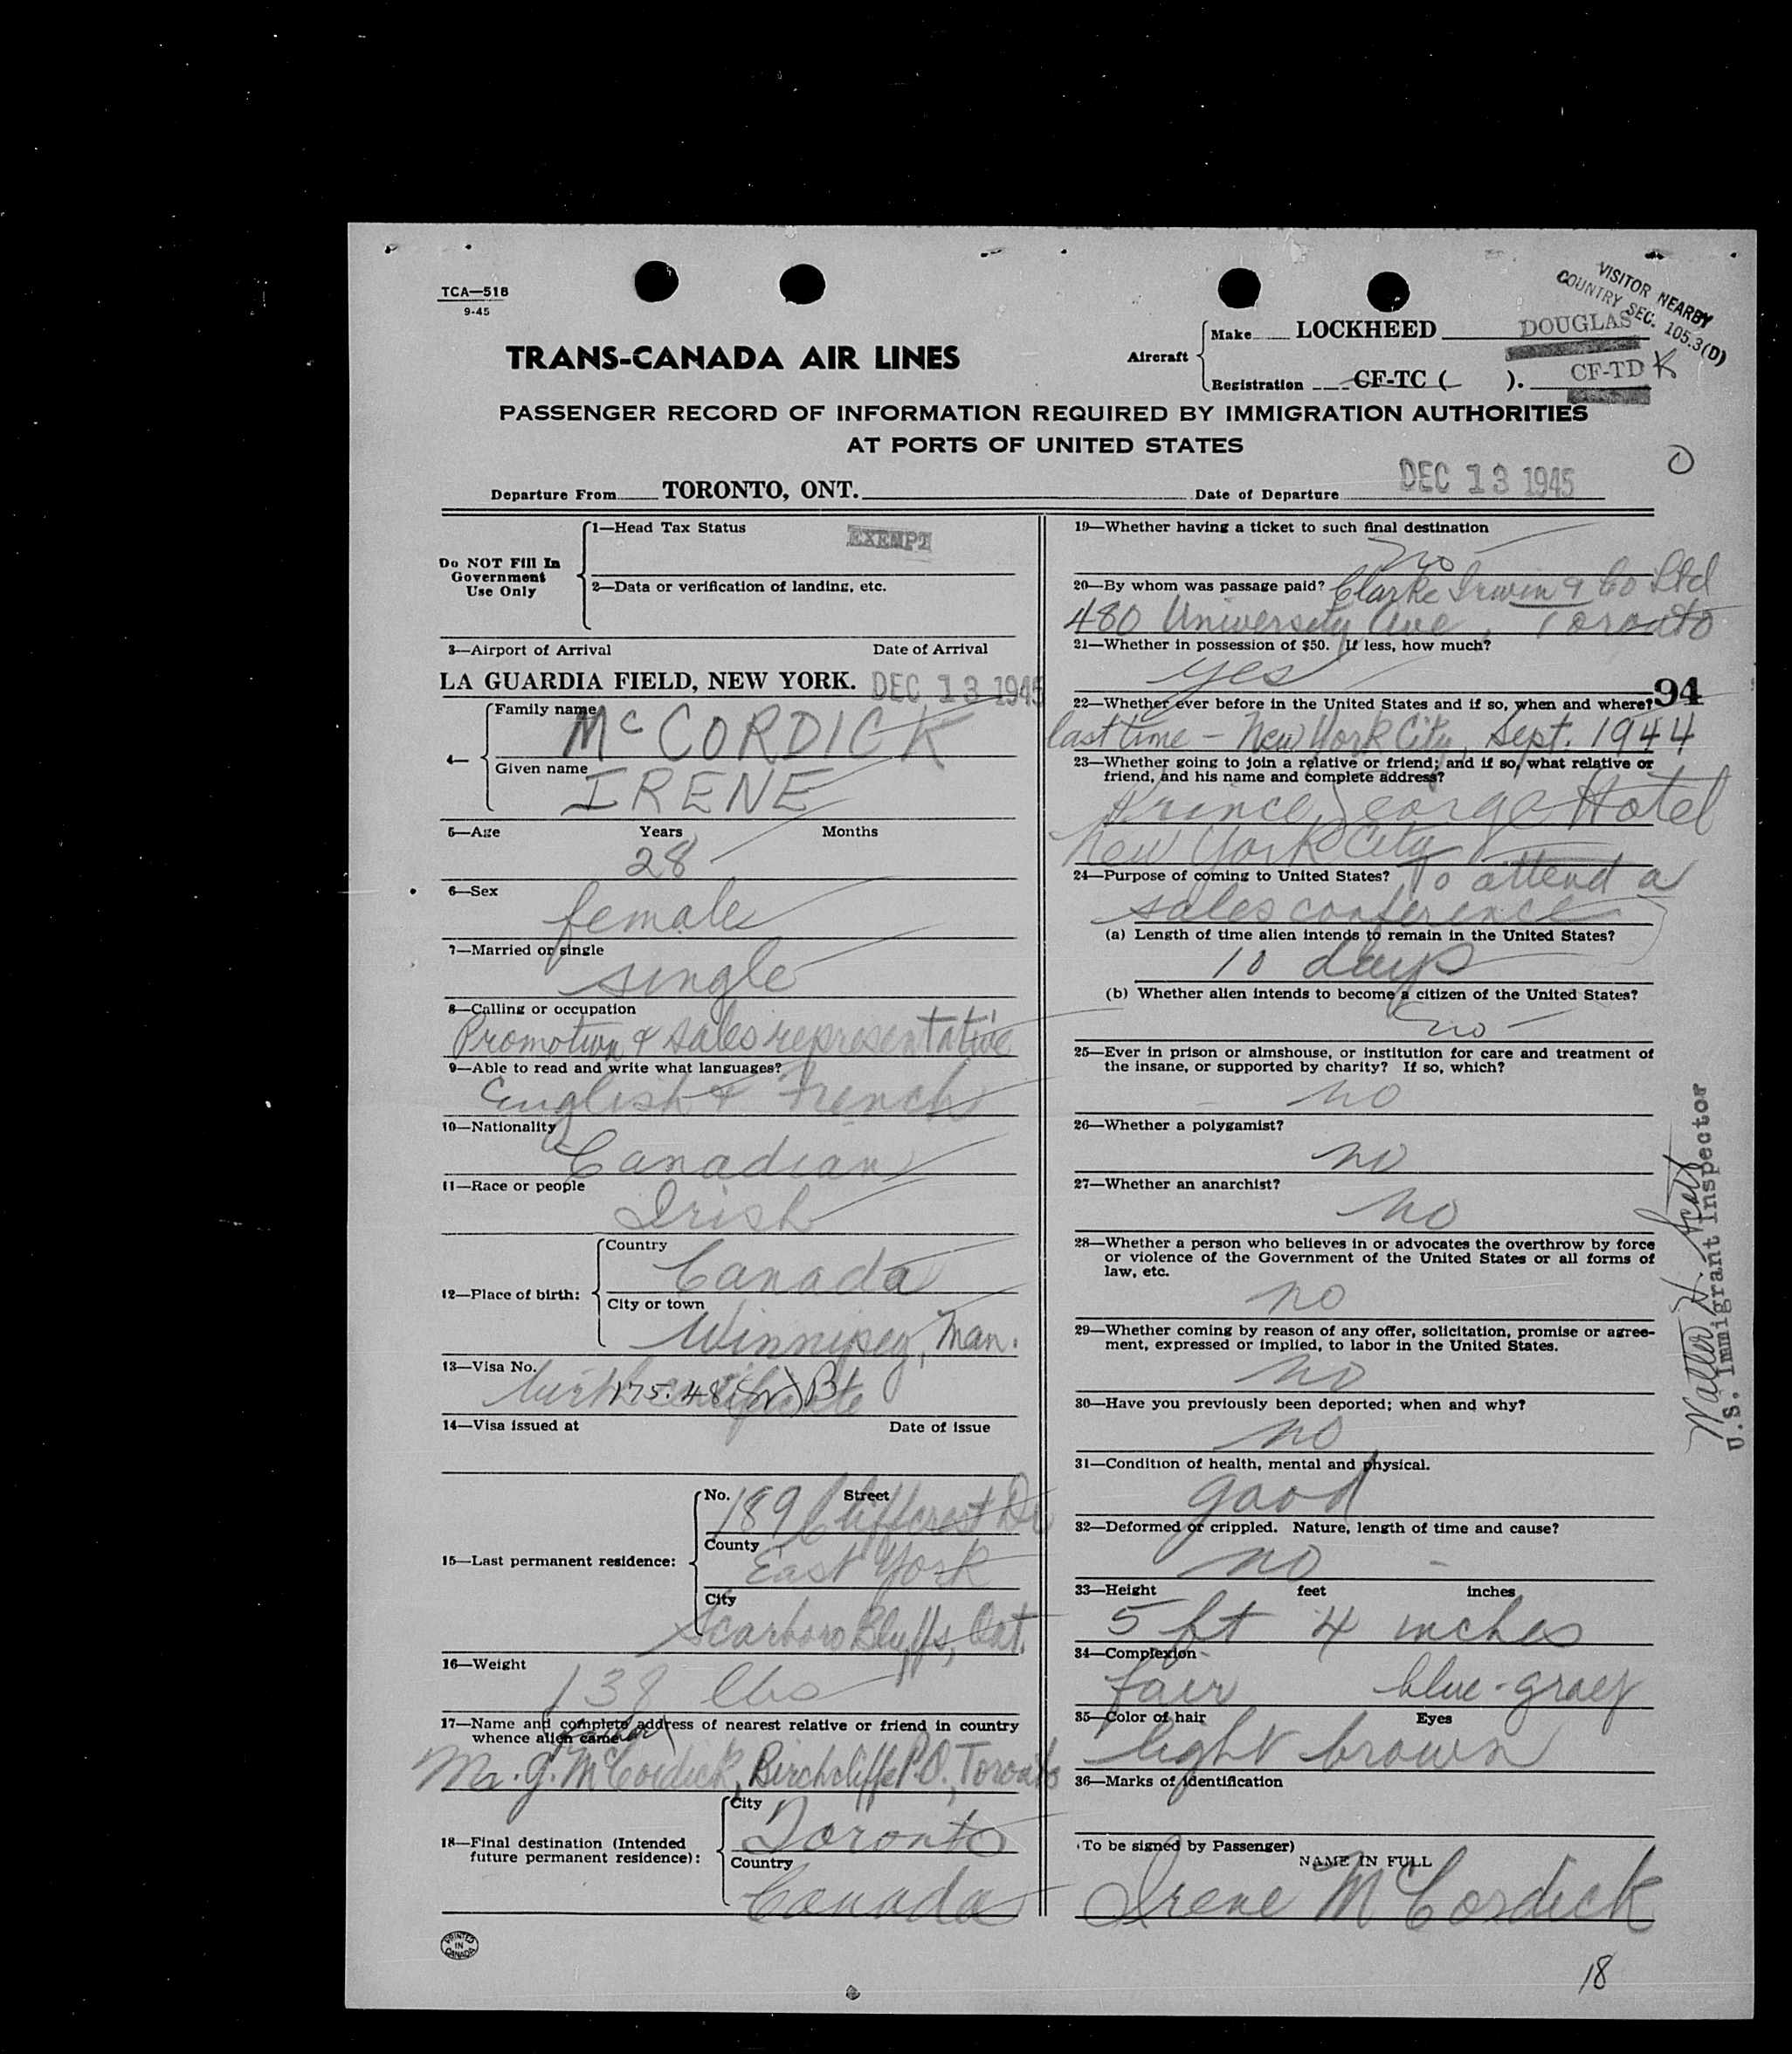 TCA—518
9-45
VISITOR NEARBY
COUNTRY SEC. 105.3(D)
TRANS-CANADA AIR LINES
Aircraft
Make LOCKHEED DOUGLAS
Registration CF-TC ( ). CF-TD K
PASSENGER RECORD OF INFORMATION REQUIRED BY IMMIGRATION AUTHORITIES
AT PORTS OF UNITED STATES
O
Departure From TORONTO, ONT. Date of Departure DEC 13 1945
Do NOT Fill In
Government
Use Only
1—Head Tax Status EXEMPT
2—Data or verification of landing, etc.
3—Airport of Arrival Date of Arrival
LA GUARDIA FIELD, NEW YORK. DEC 13 1945
4—
Family name
McCORDICK
Given name
IRENE
5—Age Years Months
28
6—Sex
female
7—Married or single
single
8—Calling or occupation
Promotion & sales representative
9—Able to read and write what languages?
English & French
10—Nationality
Canadian
11—Race or people
Irish
12—Place of birth:
Country
Canada
City or town
Winnipeg, Man.
13—Visa No.
birth certificate
175.48
14—Visa issued at Date of issue
15—Last permanent residence:
No. Street
189 Cliffcrest Dr
County
East York
City
Scarboro Bluffs, Ont.
16—Weight
138 lbs
17—Name and complete address of nearest relative or friend in country
whence alien came
father
Mr. J. McCordick, Birchcliffe P.O., Toronto
18—Final destination (Intended
future permanent residence):
City
Toronto
Country
Canada
PRINTED
IN
CANADA
19—Whether having a ticket to such final destination
no
20—By whom was passage paid? Clarke Irwin & Co Ltd
480 University Ave, Toronto
21—Whether in possession of $50. If less, how much?
yes
94
22—Whether ever before in the United States and if so, when and where?
last time - New York City, Sept. 1944
23—Whether going to join a relative or friend; and if so, what relative or
friend, and his name and complete address?
Prince George Hotel
New York City
24—Purpose of coming to United States? To attend a
sales conference
(a) Length of time alien intends to remain in the United States?
10 days
(b) Whether alien intends to become a citizen of the United States?
no
25—Ever in prison or almshouse, or institution for care and treatment of
the insane, or supported by charity? If so, which?
no
26—Whether a polygamist?
no
27—Whether an anarchist?
no
28—Whether a person who believes in or advocates the overthrow by force
or violence of the Government of the United States or all forms of
law, etc.
no
29—Whether coming by reason of any offer, solicitation, promise or agree-
ment, expressed or implied, to labor in the United States.
no
30—Have you previously been deported; when and why?
no
31—Condition of health, mental and physical.
good
32—Deformed or crippled. Nature, length of time and cause?
no -
33—Height feet inches
5 ft 4 inches
34—Complexion
fair blue-gray
35—Color of hair Eyes
light brown
36—Marks of identification
(To be signed by Passenger)
NAME IN FULL
Irene McCordick
Walter H. Scott
U.S. Immigrant Inspector
18